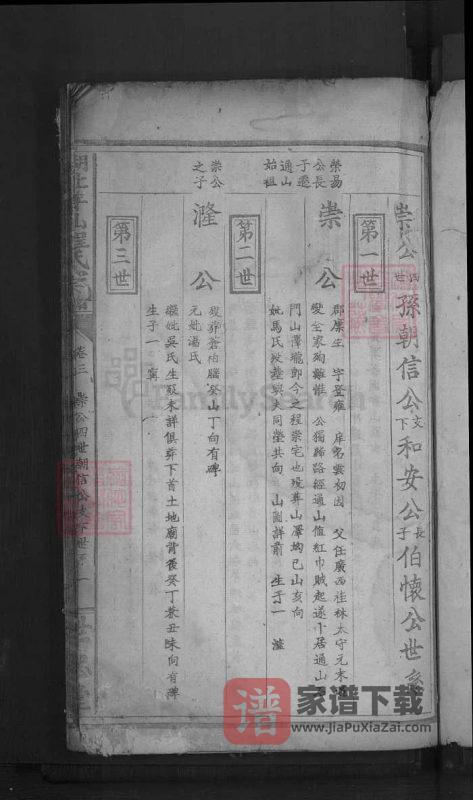 崇公四世孫朝信公支下和安公長子伯懷公世系
第一世
榮易
公長
子遷
通山
始祖
崇公
郡庠生 字登雍 庠名雲初因 父任廣西桂林太守元末
變全家殉難惟 公獨歸路經通山值紅巾賊起遂卜居通山
門山澤壠即今之程崇宅也歿葬山澤坳巳山亥向
妣馬氏歿葬與夫同塋共向 山圖詳前 生子一
第二世
崇公
之子
公
歿葬蒼柏腦癸山丁向有碑
元妣湯氏
繼妣吳氏生歿未詳俱葬下首土地廟背後癸丁兼丑未向有碑
生子一 寧
第三世
卷三 崇公四世朝信公支下世系
FamilySearch
谱
家谱下载
www.JiaPuXiaZai.com